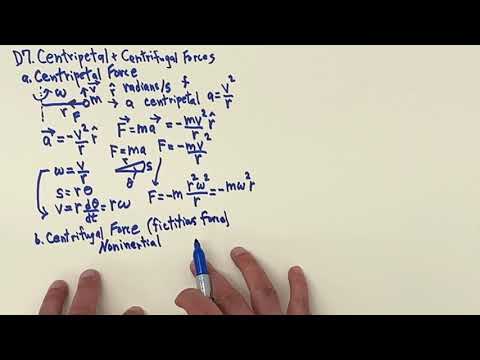 D7. Centripetal + Centrifugal Forces
a. Centripetal Force
ω v r̂ radians/s f
r F m → a centripetal a = v²/r
a⃗ = -v²/r r̂ F⃗ = ma⃗ = -mv²/r r̂
F = ma F = -mv²/r
r s θ
ω = v/r
s = rθ
v = r dθ/dt = rω F = -m r²ω²/r = -mω²r
b. Centrifugal Force (fictitius force)
Noninertial